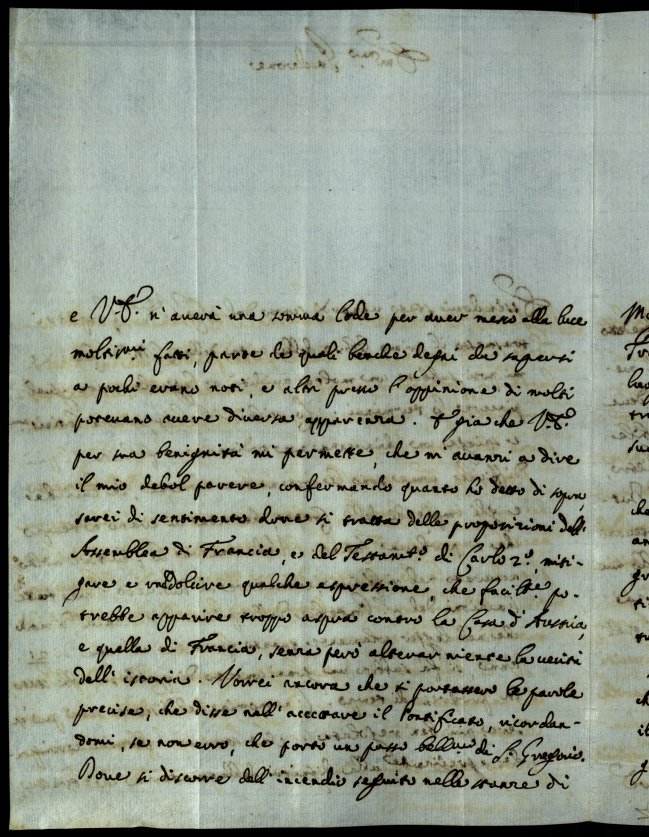 e V.S. n'averà una somma lode per aver messo alla luce
moltissimi fatti, parte de quali benche degni da sapersi
a pochi erano noti, e altri presso l'oppinione di molti
potevano avere diversa apparenza. già che V.S.
per sua benignità mi permette, che m'avanzi a dire
il mio debol parere, confermando quanto hò detto di sopra,
sarei di sentimento dove si tratta delle proposizioni dell'
Assemblea di Francia, e del Testam.to di Carlo 2.o, miti-
gare e raddolcire qualche espressione, che facilm.e po-
trebbe apparire troppo aspra contro la Casa d'Austria,
e quella di Francia, senza però alterar niente la verità
dell'istoria. Vorrei ancora che si portassero le parole
precise, che disse nell'accettare il Pontificato, ricordan-
domi, se non erro, che portò un passo bellmo di S. Gregorio.
Dove si discorre dell'incendio seguito nelle stanze di